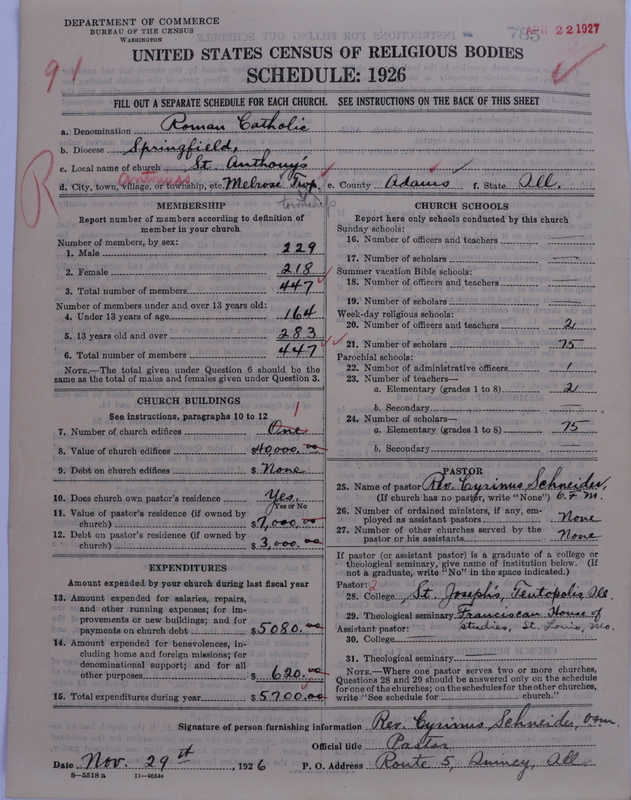 DEPARTMENT OF COMMERCE
BUREAU OF THE CENSUS
WASHINGTON
785
APR 22 1927
UNITED STATES CENSUS OF RELIGIOUS BODIES
SCHEDULE: 1926
91
FILL OUT A SEPARATE SCHEDULE FOR EACH CHURCH. SEE INSTRUCTIONS ON THE BACK OF THIS SHEET
a. Denomination Roman Catholic
b. Diocese Springfield,
c. Local name of church St. Anthony's
R
d. City, town, village, or township, etc. Melrose Twp. e. County Adams f. State Ill.
township
MEMBERSHIP
Report number of members according to definition of member in your church
Number of members, by sex:
1. Male 229
2. Female 218
3. Total number of members 447
Number of members under and over 13 years old:
4. Under 13 years of age 164
5. 13 years old and over 283
6. Total number of members 447
NOTE.—The total given under Question 6 should be the same as the total of males and females given under Question 3.
CHURCH BUILDINGS
See instructions, paragraphs 10 to 12
1
7. Number of church edifices One
8. Value of church edifices $40,000.00
9. Debt on church edifices $ None
10. Does church own pastor's residence Yes.
Yes or No
11. Value of pastor's residence (if owned by church) $7,000.00
12. Debt on pastor's residence (if owned by church) $3,000.00
EXPENDITURES
Amount expended by your church during last fiscal year
13. Amount expended for salaries, repairs, and other running expenses; for improvements or new buildings; and for payments on church debt $5080.00
14. Amount expended for benevolences, including home and foreign missions; for denominational support; and for all other purposes $620.00
15. Total expenditures during year $5700.00
CHURCH SCHOOLS
Report here only schools conducted by this church
Sunday schools:
16. Number of officers and teachers
17. Number of scholars
Summer vacation Bible schools:
18. Number of officers and teachers
19. Number of scholars
Week-day religious schools:
20. Number of officers and teachers 2
21. Number of scholars 75
Parochial schools:
22. Number of administrative officers 1
23. Number of teachers—
a. Elementary (grades 1 to 8) 2
b. Secondary
24. Number of scholars—
a. Elementary (grades 1 to 8) 75
b. Secondary
PASTOR
25. Name of pastor Rev. Cyrinus Schneider,
(If church has no pastor, write "None") O.F.M.
26. Number of ordained ministers, if any, employed as assistant pastors None
27. Number of other churches served by the pastor or his assistants None
If pastor (or assistant pastor) is a graduate of a college or theological seminary, give name of institution below. (If not a graduate, write "No" in the space indicated.)
Pastor: 2
28. College St. Joseph's, Teutopolis, Ill.
29. Theological seminary Franciscan House of
Assistant pastor: Studies, St. Louis, Mo.
30. College
31. Theological seminary
NOTE.—Where one pastor serves two or more churches, Questions 28 and 29 should be answered only on the schedule for one of the churches; on the schedules for the other churches, write "See schedule for church."
Signature of person furnishing information Rev. Cyrinus Schneider, ofm.
Official title Pastor
Date Nov. 29th, 1926 P. O. Address Route 5, Quincy, Ill.
8—5518a 11—9054a